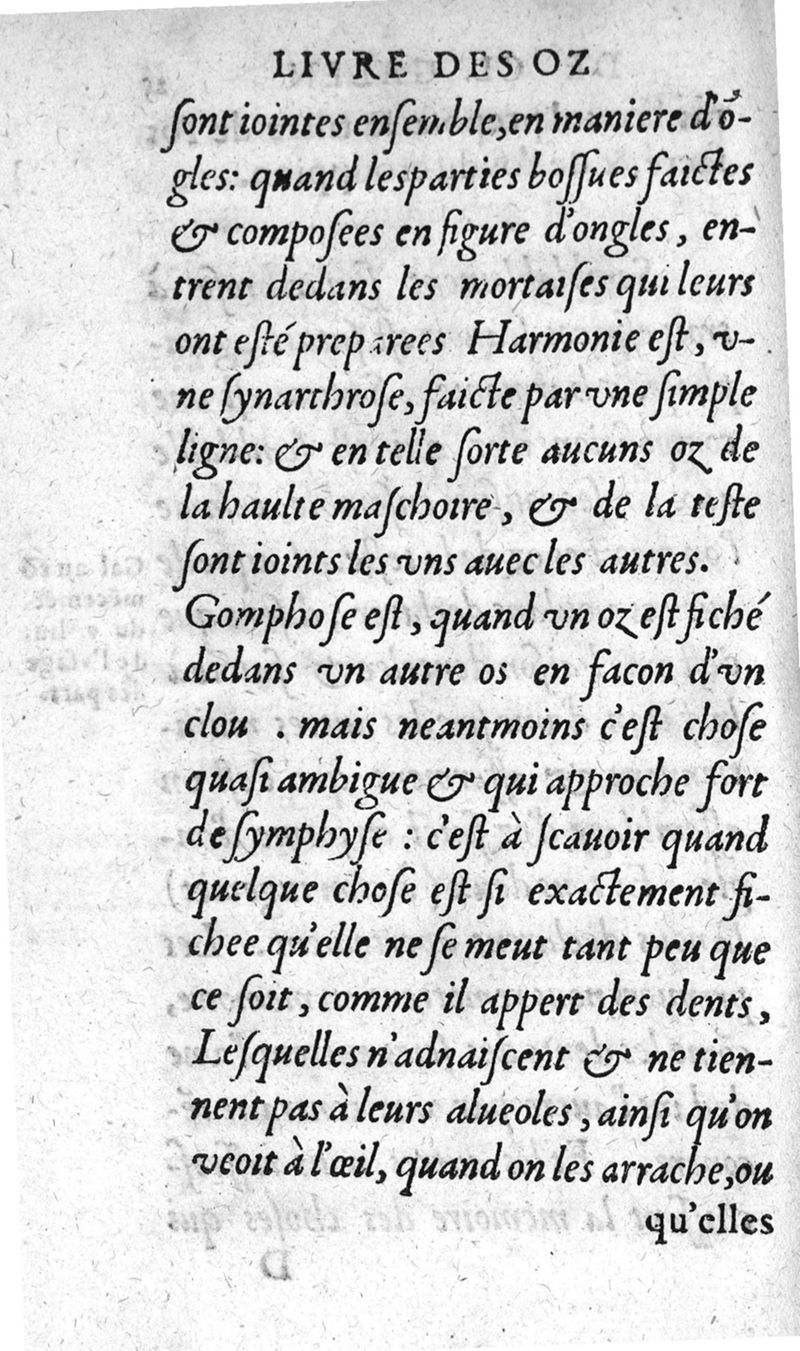 LIVRE DES OZ
ſont iointes enſemble,en maniere d'õ-
gles: quand lesparties boſſues faictes
& compoſees en figure d'ongles, en-
trent dedans les mortaiſes qui leurs
ont eſté preparees Harmonie eſt, v-
ne ſynarthroſe, faicte par vne ſimple
ligne: & en telle ſorte aucuns oz de
la haulte maſchoire, & de la teſte
ſont ioints les vns auec les autres.
Gomphoſe eſt, quand vn oz eſt fiché
dedans vn autre os en facon d'vn
clou . mais neantmoins c'eſt choſe
quaſi ambigue & qui approche fort
de ſymphyſe : c'eſt à ſcauoir quand
quelque choſe eſt ſi exactement fi-
chee qu'elle ne ſe meut tant peu que
ce ſoit, comme il appert des dents,
Leſquelles n'adnaiſcent & ne tien-
nent pas à leurs alueoles, ainſi qu'on
veoit à l'œil, quand on les arrache,ou
qu'elles